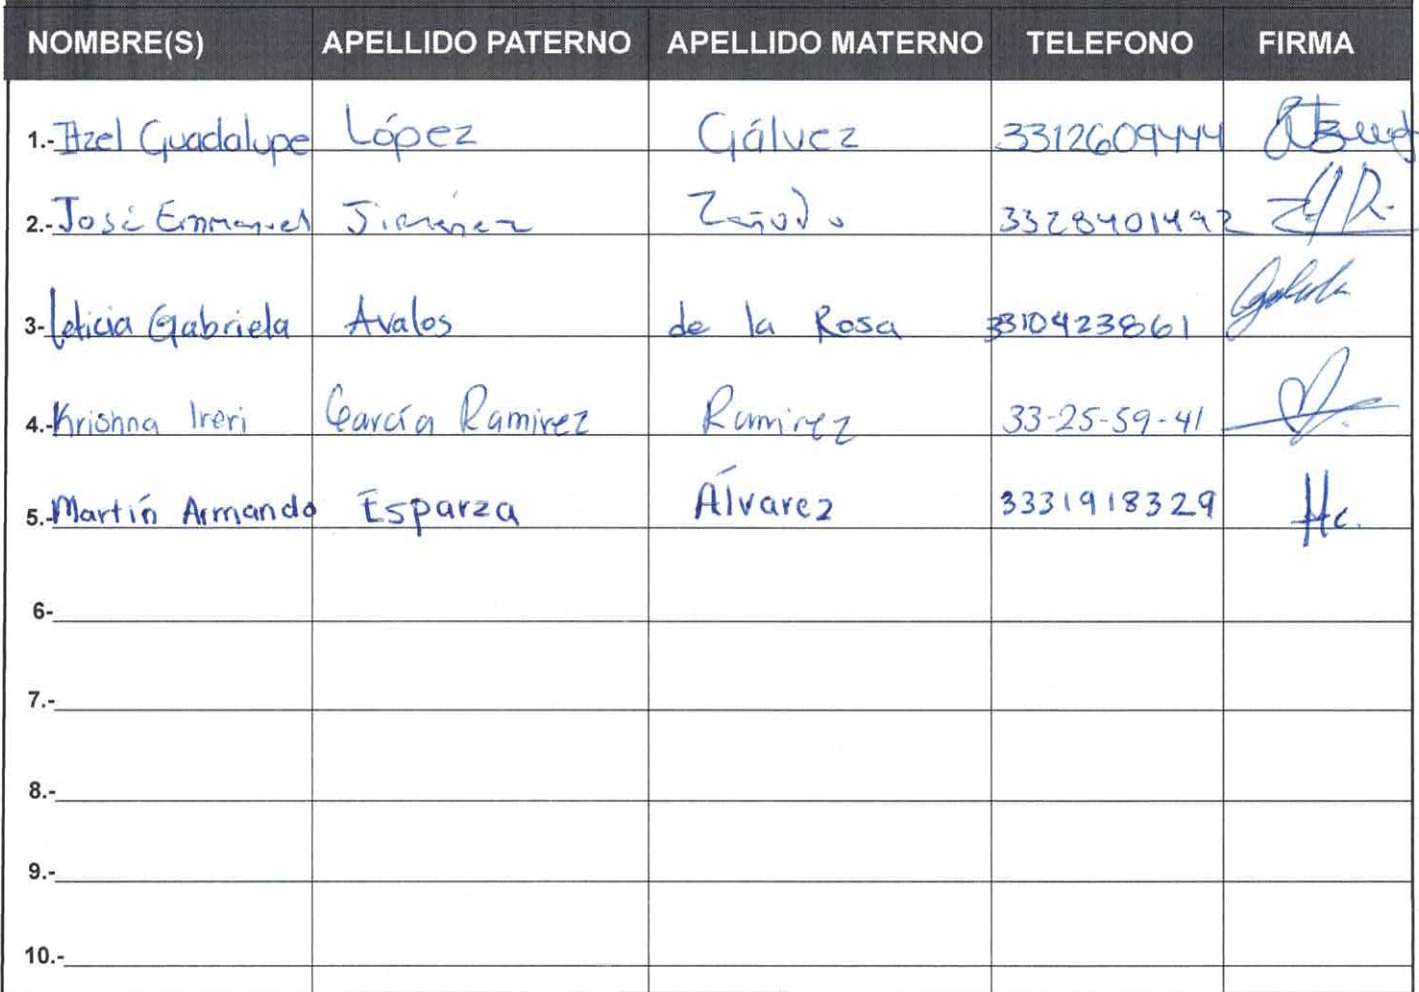 NOMBRE(S) APELLIDO PATERNO APELLIDO MATERNO TELEFONO FIRMA
1.- Itzel Guadalupe López Gálvez 3312609444
2.- José Emmanuel Jiménez 3328401492
3- Leticia Gabriela Avalos de la Rosa 3310423861
4.- Krishna Ireri García Ramirez Ramirez 33-25-59-41
5.- Martín Armando Esparza Álvarez 3331918329
6-
7.-
8.-
9.-
10.-